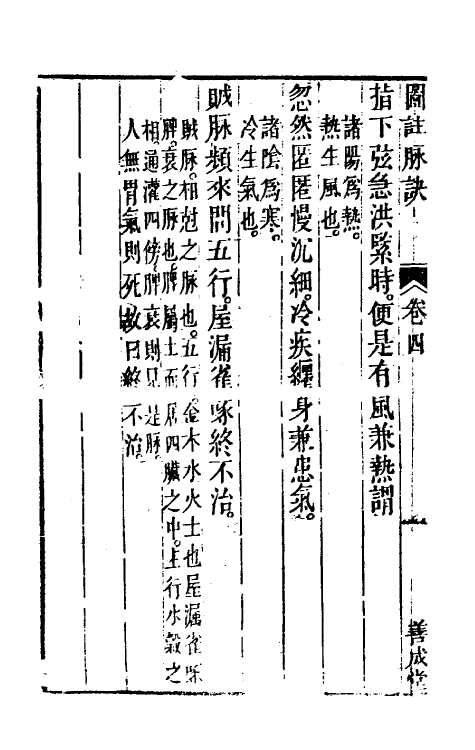 圖註脉訣 卷四 善成堂
指下弦急洪緊時。便是有風兼熱謂
諸陽爲熱。
熱生風也。
忽然匿匿慢沉細。冷疾纒身兼患氣。
諸陰爲寒。
冷生氣也。
賊脉頻來問五行。屋漏雀啄終不治。
賊脉。相尅之脉也。五行。金木水火土也屋漏雀啄
脾。衰之脉也。脾屬土而居四臟之中。上行水穀之
相。通灌四傍。脾衰則見是脉。
人無胃氣則死。故曰終不治。